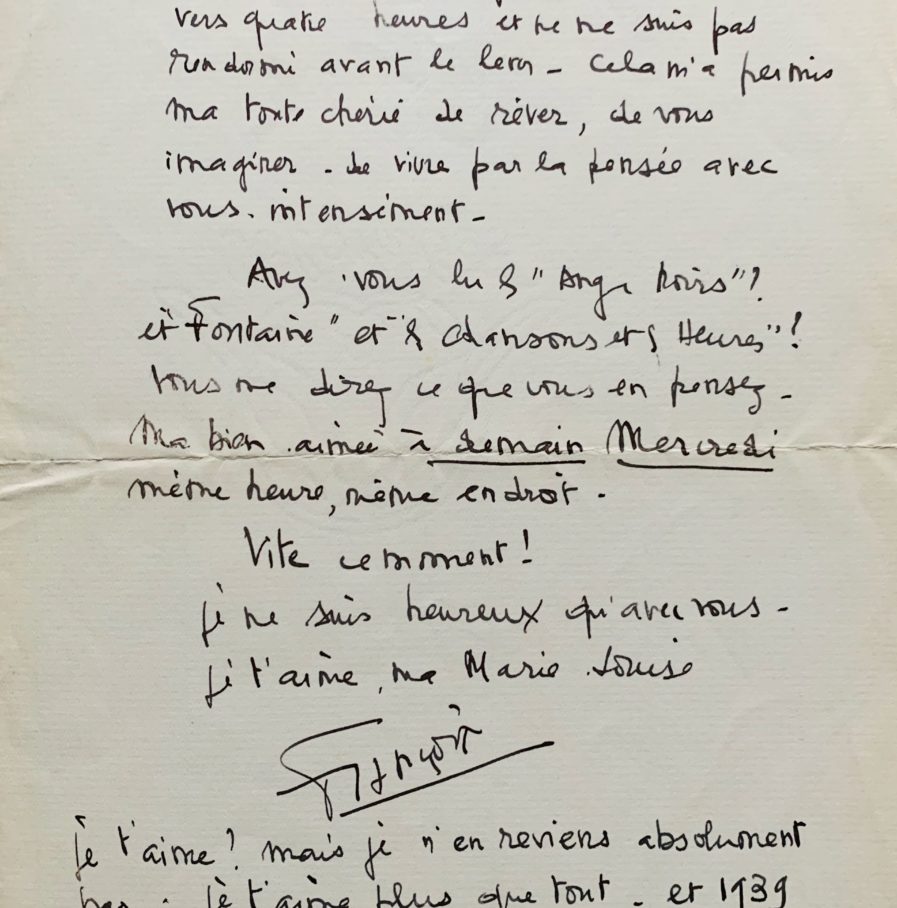 vers quatre heures et ne me suis pas
rendormi avant le lever - Cela m'a permis
ma toute chérie de rêver, de vous
imaginer - de vivre par la pensée avec
vous. intensément -
Avez vous lu les "Anges Noirs"?
et Fontaine" et "les Chansons et les Heures"!
Vous me direz ce que vous en pensez -
Ma bien aimée à demain Mercredi
même heure, même endroit.
Vite ce moment!
je ne suis heureux qu'avec vous -
je t'aime, ma Marie Louise
François
je t'aime? mais je n'en reviens absolument
pas. je t'aime plus que tout - et 1939